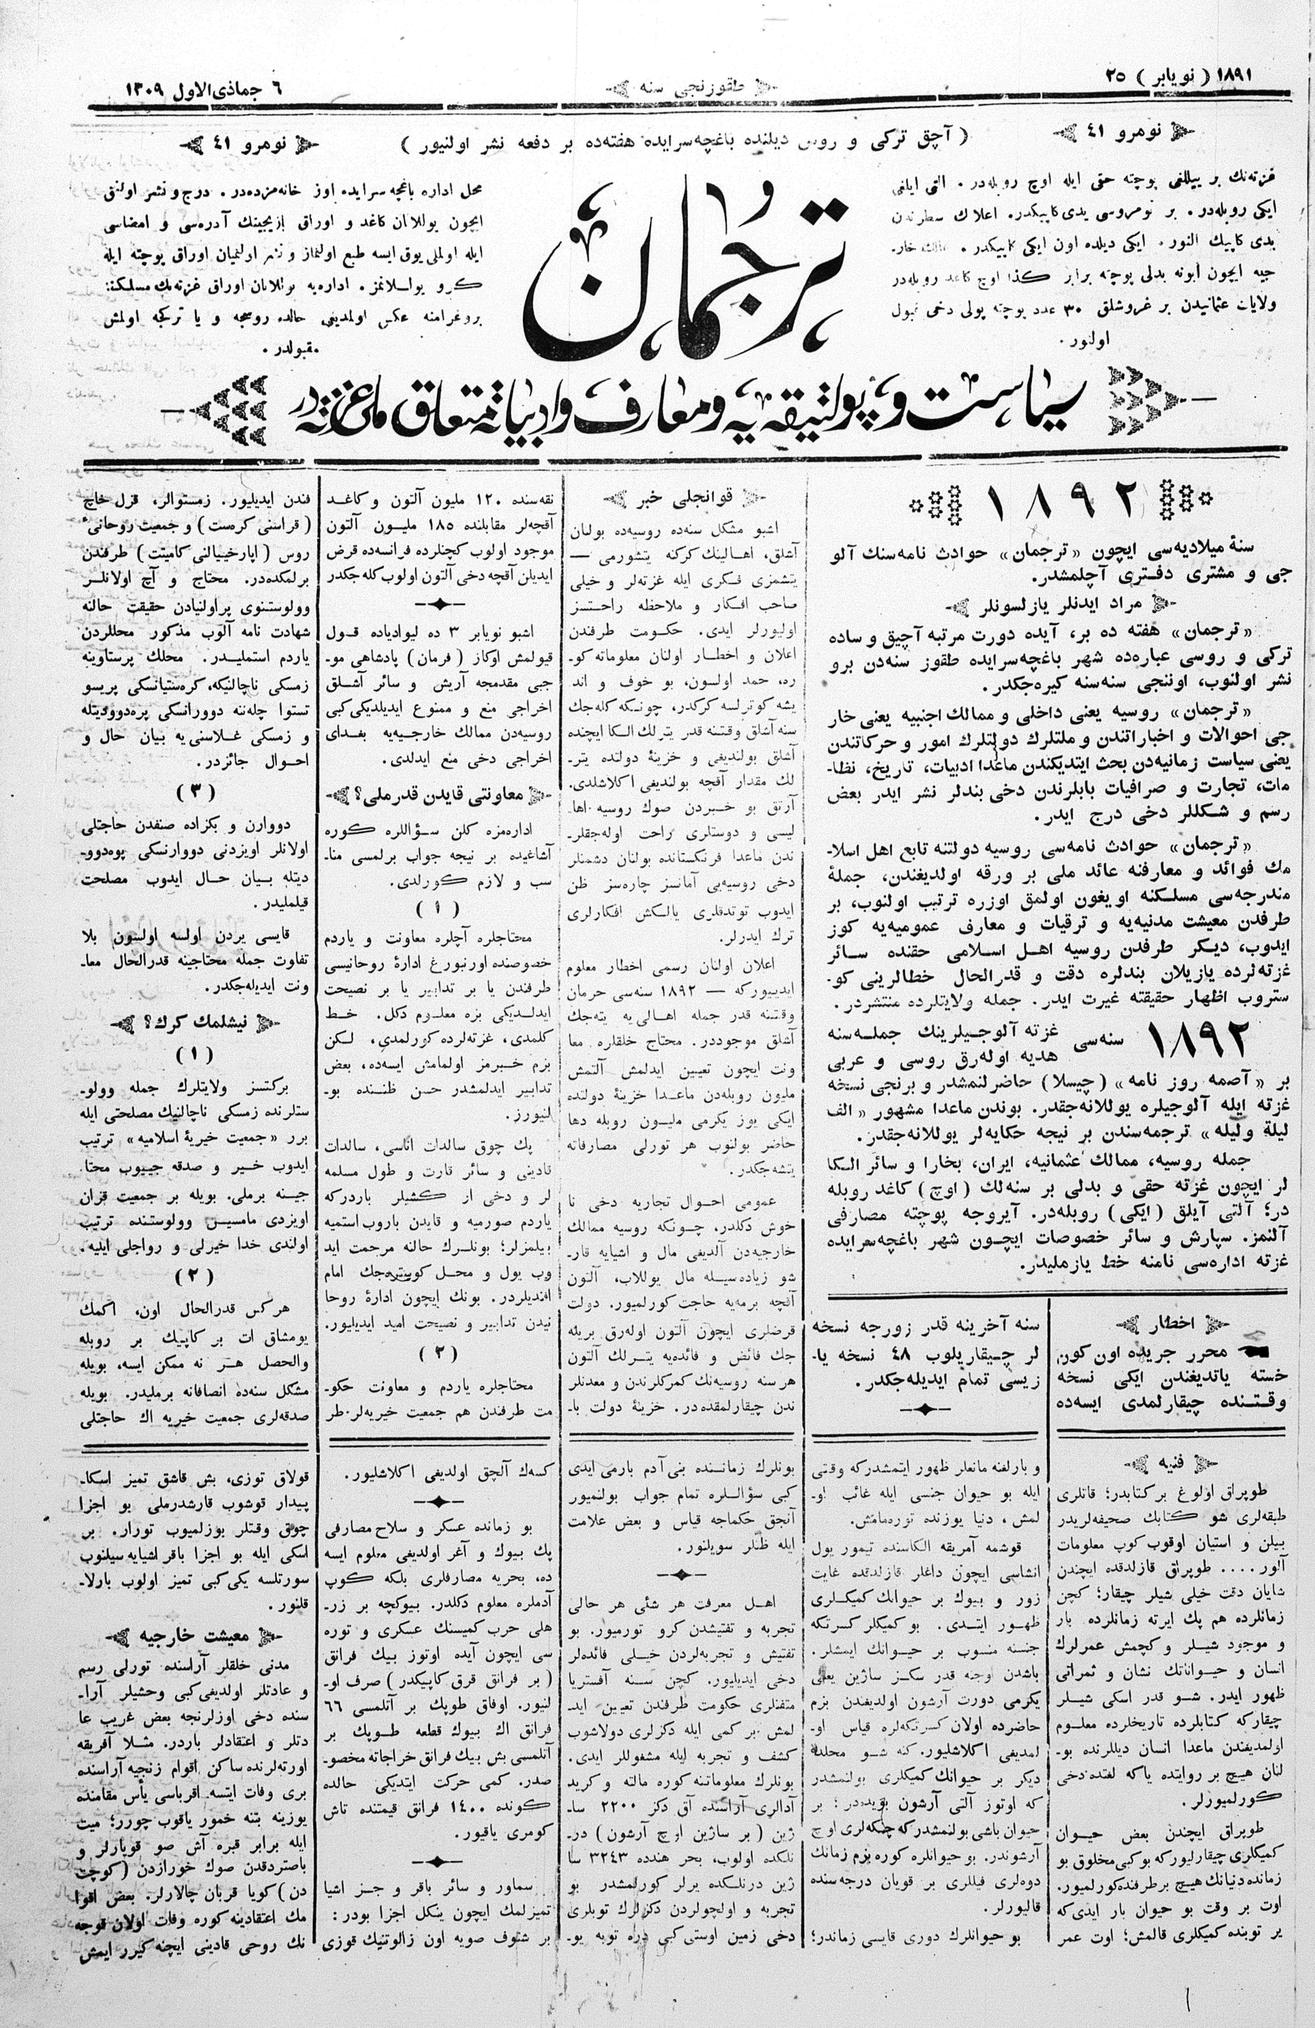 ١٨٩١ ( نویابر ) ٢٥
طقوزنجی سنه
٦ جماذی‌الاول ١٣٠٩
نومرو ٤١
( آچق تركی و روس دیلنده باغچه‌سرایده هفته‌ده بر دفعه نشر اولنیور )
نومرو ٤١
غزته‌نك بر ییللغی پوچته حقی ایله اوچ روبله‌در. التی ایلغی
ایكی روبله‌در. بر نومروسی یدی كاپیكدر. اعلانك سطرندن
یدی كاپیك النور. ایكی دیلده اون ایكی كاپیكدر.
جیه ایچون آبونه بدلی پوچته برابر
ولایات عثمانیدن بر غروشلق ٣٠ عدد پوچته پولی دخی قبول
اولنور.
ترجمان
محل اداره باغچه سرایده اوز خانه‌مزده‌در. درج و نشر اولنق
ایچون یوللانان كاغد و اوراق یازیجینك آدره‌سی و امضاسی
ایله اولملی یوق ایسه طبع اولنماز و نشر اولنمیان اوراق پوچته ایله
كرو یوللانمز. اداره‌یه یوللانان اوراق غزته‌نك مسلكنه
پروغرامنه عكس اولمدیغی حالده روسجه و یا تركجه اولمش
مقبولدر.
سیاست و پولتیقه‌یه و معارف و ادبیاته متعلق ملی غزته‌در
١٨٩٢
سنۀ میلادیه‌سی ایچون «ترجمان» حوادث نامه‌سنك آلو
جی و مشتری دفتری آچلمشدر.
مراد ایدنلر یازلسونلر
«ترجمان» هفته ده بر، آیده دورت مرتبه آچیق و ساده
تركی و روسی عباره‌ده شهر باغچه‌سرایده طقوز سنه‌دن برو
نشر اولنوب، اوننجی سنه‌سنه كیره‌جكدر.
«ترجمان» روسیه یعنی داخلی و ممالك اجنبیه یعنی خار
جی احوالات و اخباراتندن و ملتلرك دولتلرك امور و حركاتندن
یعنی سیاست زمانیه‌دن بحث ایتدیكندن ماعدا ادبیات، تاریخ، نظا-
مات، تجارت و صرافیات بابلرندن دخی بندلر نشر ایدر بعض
رسم و شكللر دخی درج ایدر.
«ترجمان» حوادث نامه‌سی روسیه دولتنه تابع اهل اسلا-
مك فوائد و معارفنه عائد ملی بر ورقه اولدیغندن، جملۀ
مندرجه‌سی مسلكنه اویغون اولمق اوزره ترتیب اولنوب، بر
طرفدن معیشت مدنیه‌یه و ترقیات و معارف عمومیه‌یه كوز
ایدوب، دیكر طرفدن روسیه اهل اسلامی حقنده سائر
غزته‌لرده یازیلان بندلره دقت و قدرالحال خطالرینی كو-
ستروب اظهار حقیقته غیرت ایدر. جمله ولایتلرده منتشردر.
١٨٩٢ سنه‌سی غزته آلوجیلرینك جمله‌سنه
هدیه اوله‌رق روسی و عربی
بر «آصمه روز نامه» (چیسلا) حاضرلنمشدر و برنجی نسخه
غزته ایله آلوجیلره یوللانه‌جقدر. بوندن ماعدا مشهور «الف
لیلة ولیله» ترجمه‌سندن بر نیجه حكایه‌لر یوللانه‌جقدر.
جمله روسیه، ممالك عثمانیه، ایران، بخارا و سائر الكا
لر ایچون غزته حقی و بدلی بر سنه‌لك (اوچ) كاغد روبله
در؛ آلتی آیلق (ایكی) روبله‌در. آیروجه پوچته مصارفی
آلنمز. سپارش و سائر خصوصات ایچون شهر باغچه‌سرایده
غزته اداره‌سی نامنه خط یازملیدر.
اخطار
محرر جریده اون كون
خسته یاتدیغندن ایكی نسخه
وقتنده چیقارلمدی ایسه‌ده
سنه آخرینه قدر زورجه نسخه
لر چیقاریلوب ٤٨ نسخه یا-
زیسی تمام ایدیله‌جكدر.
قوانجلی خبر
اشبو مشكل سنه‌ده روسیه‌ده بولنان
آشلق، اهالینك كركنه یتشورمی —
یتشمزی فكری ایله غزته‌لر و خیلی
صاحب افكار و ملاحظه راحتسز
اولیورلر ایدی. حكومت طرفندن
اعلان و اخطار اولنان معلوماته كو-
ره، حمد اولسون، بو خوف و اند
یشه كوترلسه كركدر، چونكه كله‌جك
سنه آشلق وقتنه قدر یترلك الكا ایچنده
آشلق بولندیغی و خزینۀ دولتده یتر-
لك مقدار آقچه بولندیغی اكلاشلدی.
آرتق بو خبردن صوك روسیه اها-
لیسی و دوستلری راحت اوله‌جقلر-
ندن ماعدا فرنكستانده بولنان دشمنلر
دخی روسیه‌یی آمانسز چاره‌سز ظن
ایدوب توتدقلری یالكش افكارلری
ترك ایدرلر.
اعلان اولنان رسمی اخطار معلوم
ایدییوركه — ١٨٩٢ سنه‌سی حرمان
وقتنه قدر جمله اهالی‌یه یته‌جك
آشلق موجوددر. محتاج خلقلره معا
ونت ایچون تعیین ایدلمش آلتمش
ملیون روبله‌دن ماعدا خزینۀ دولتده
ایكی یوز یكرمی ملیون روبله دها
حاضر بولنوب هر تورلی مصارفاته
یتشه‌جكدر.
عمومی احوال تجاریه دخی نا
خوش دكلدر، چونكه روسیه ممالك
خارجیه‌دن آلدیغی مال و اشیایه قار-
شو زیاده‌سیله مال یوللاب، آلتون
آقچه برمه‌یه حاجت كورلمیور. دولت
قرضلری ایچون آلتون اوله‌رق بریله
جك فائض و فائده‌یه یترلك آلتون
هر سنه روسیه‌نك كمركلرندن و معدنلر
ندن چیقارلمقده‌در. خزینۀ دولت با-
نقه‌سنده ١٢٠ ملیون آلتون و كاغد
آقچه‌لر مقابلنده ١٨٥ ملیون آلتون
موجود اولوب كچنلرده فرانسه‌ده قرض
ایدیلن آقچه دخی آلتون اولوب كله‌جكدر
اشبو نویابر ٣ ده لیوادیاده قول
قیولمش اوكاز (فرمان) پادشاهی مو-
جبی مقدمجه آریش و سائر آشلق
اخراجی منع و ممنوع ایدیلدیكی كبی
روسیه‌دن ممالك خارجیه‌یه بغدای
اخراجی دخی منع ایدلدی.
معاونتی قایدن قدرملی؟
اداره‌مزه كلن سؤاللره كوره
آشاغیده بر نیجه جواب برلمسی منا-
سب و لازم كورلدی.
(١)
محتاجلره آچلره معاونت و یاردم
خصوصنده اورنبورغ ادارۀ روحانیسی
طرفندن یا بر تدابیر یا بر نصیحت
ایدلدیكی بزه معلوم دكل. خط
كلمدی، غزته‌لرده كورلمدی، لكن
بزم خبرمز اولمامش ایسه‌ده، بعض
تدابیر ایدلمشدر حسن ظننده بو-
لنیورز.
پك چوق سالدات آناسی، سالدات
قادینی و سائر قارت و طول مسلمه
لر و دخی از كشیلر باردركه
یاردم صورمیه و قایدن یاروب استمیه
بیلمزلر؛ بونلرك حالنه مرحمت اید
وب یول و محل كوستره‌جك امام
افندیلردر. بونك ایچون ادارۀ روحا
نیدن تدابیر و نصیحت امید ایدیلیور.
(٢)
محتاجلره یاردم و معاونت حكو-
مت طرفندن هم جمعیت خیریه‌لر طر
فندن ایدیلیور. زمستوالر، قزل خاچ
(قراسنی كرست) و جمعیت روحانیۀ
روس (اپارخییالنی كامیتت) طرفندن
برلمكده‌در. محتاج و آچ اولانلر
وولوستنوی پراولنیادن حقیقت حالنه
شهادت نامه آلوب مذكور محللردن
یاردم استملیدر. محلك پرستاوینه
زمسكی ناچالنیكه، كره‌ستیانسكی پریسو
تستوا چله‌ننه دوورانسكی پره‌دوودیتله
و زمسكی غلاسنی‌یه بیان حال و
احوال جائزدر.
(٣)
دووارن و بكزاده صنفدن حاجتلی
اولانلر اویزدنی دووارنسكی پره‌دوو-
دیتله بیان حال ایدوب مصلحت
قیلملیدر.
قایسی یردن اولسه اولسون بلا
تفاوت جمله محتاجینه قدرالحال معا-
ونت ایدیله‌جكدر.
نیشلمك كرك؟
(١)
بركتسز ولایتلرك جمله وولو-
ستلرنده زمسكی ناچالنیك مصلحتی ایله
برر «جمعیت خیریۀ اسلامیه» ترتیب
ایدوب خیر و صدقه جییوب محتا-
جینه برملی. بویله بر جمعیت قزان
اویزدی مامسیس وولوستنده ترتیب
اولندی خدا خیرلی و رواجلی ایلیه.
(٢)
هركس قدرالحال اون، اكمك
یومشاق ات بر كاپیك بر روبله
والحصل هر نه ممكن ایسه، بویله
مشكل سنه‌ده انصافانه برملیدر. بویله
صدقه‌لری جمعیت خیریه اك حاجتلی
فنیه
طوپراق اولوغ بر كتابدر؛ قاتلری
طبقه‌لری شو كتابك صحیفه‌لریدر
بیلن و استیان اوقوب كوپ معلومات
آلور.... طوپراق قازلدقده ایچندن
شایان دقت خیلی شیلر چیقار؛ كچن
زمانلرده هم پك ایرته زمانلرده بار
و موجود شیلر و كچمش عمرلرك
انسان و حیواناتك نشان و ثمراتی
ظهور ایدر. شو قدر اسكی شیلر
چیقاركه كتابلرده تاریخلرده معلوم
اولمدیغندن ماعدا انسان دیللرنده بو-
لنان هیچ بر روایتده یاكه لغتده‌دخی
كورلمیوزلر.
طوپراق ایچندن بعض حیوان
كمیكلری چیقارلیوركه بو كبی مخلوق بو
زمانده دنیانك هیچ بر طرفنده كورلمیور.
اوت بر وقت بو حیوان بار ایدی‌كه
یر توبنده كمیكلری قالمش؛ اوت عمر
و بارلغنه مانعلر ظهور ایتمشدركه وقتی
ایله بو حیوان جنسی ایله غائب او-
لمش، دنیا یوزنده توره‌مامش.
قوشمه آمریقه الكاسنده تیمور یول
انشاسی ایچون داغلر قازلدقده غایت
زور و بیوك بر حیوانك كمیكلری
ظهور ایتدی. بو كمیكلر كسرتنكه
جنسنه منسوب بر حیوانك ایمشلر.
باشدن اوجنه قدر سكز ساژین یعنی
یكرمی دورت آرشون اولدیغندن بزم
حاضرده اولان كسرتنكه‌لره قیاس او-
لمدیغی اكلاشلیور. كنه شو محلده
دیكر بر حیوانك كمیكلری بولنمشدر
كه اوتوز آلتی آرشون بویده‌در؛ بر
حیوان باشی بولنمشدركه چنكه‌لری اوچ
آرشوندر. بو حیوانلره كوره بزم زمانك
دوه‌لری فیللری بر قویان درجه‌سنده
قالیورلر.
بو حیوانلرك دوری قایسی زماندر؛
بونلرك زماننده بنی آدم بارمی ایدی
كبی سؤاللره تمام جواب بولنمیور
آنجق حكماجه قیاس و بعض علامت
ایله ظنلر سویلنور.
اهل معرفت هر شئی هر حالی
تجربه و تفتیشدن كرو تورمیوز. بو
تفتیش و تجربه‌لردن خیلی فائده‌لر
دخی ایدیلیور. كچن سنه آفستریا
متفنلری حكومت طرفندن تعیین اید
لمش بر كمی ایله دكزلری دولاشوب
كشف و تجربه ایله مشغوللر ایدی.
بونلرك معلوماتنه كوره مالته و كرید
آدالری آراسنده آق دكز ٢٢٠٠ سا-
ژین (بر ساژین اوچ آرشون) در-
نلكده اولوب، بحر هندده ٣٢٤٣ سا
ژین درنلكده یرلر كورلمشدر بو
تجربه و اولچولردن دكزلرك توبلری
دخی زمین اوستی كبی دره توبه یو-
كسه‌ك آلچق اولدیغی اكلاشلیور.
بو زمانده عسكر و سلاح مصارفی
پك بیوك و آغر اولدیغی معلوم ایسه
ده، بحریه مصارفلری بلكه كوپ
آدملره معلوم دكلدر. بیوكجه بر زر-
هلی حرب كمیسنك عسكری و توره
سی ایچون آیده اوتوز بیك فرانق
(بر فرانق قرق كاپیكدر) صرف او-
لنیور. اوفاق طوپك بر آتلمسی ٦٦
فرانق اك بیوك قطعه طوپك بر
آتلمسی بش بیك فرانق خراجاته مخصو-
صدر. كمی حركت ایتدیكی حالده
كونده ١٤٠٠ فرانق قیمتنده تاش
كومری یاقیور.
سماور و سائر باقر و جز اشیا
تمیزلمك ایچون ینكل اجزا بودر:
بر شتوف صویه اون زالوتنیك قوزی
قولاق توزی، بش قاشق تمیز اسكا-
پیدار قوشوب قارشدرملی بو اجزا
چوق وقتلر بوزلمیوب تورار. بر
اسكی ایله بو اجزا باقر اشیایه سیلنوب
سورتلسه یكی كبی تمیز اولوب بارلا-
قلنور.
معیشت خارجیه
مدنی خلقلر آراسنده تورلی رسم
و عادتلر اولدیغی كبی وحشیلر آرا-
سنده دخی اوزلرنجه بعض غریب عا
دتلر و اعتقادلر باردر. مثلا آفریقه
اورته‌لرنده ساكن اقوام زنجیه آراسنده
بری وفات ایتسه اقرباسی یأس مقامنده
یوزینه بتنه خمور یاقوب چورر؛ میت
ایله برابر قبره آش صو قویارلر و
باصتردقدن صوك خورازدن (كوچت
دن) كویا قربان چالارلر. بعض اقوا
مك اعتقادینه كوره وفات اولان قوجه
نك روحی قادینی ایچنه كیرر ایمش